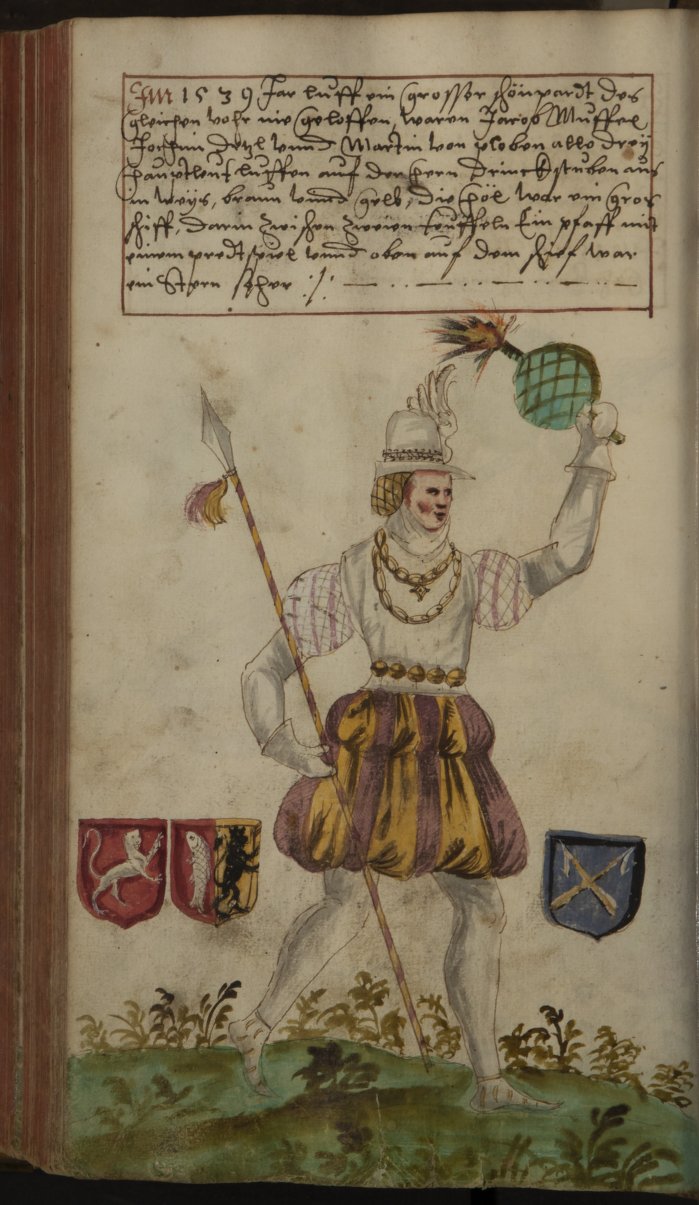 Im 1539 Jar luff ein grosser schönpardt des
gleichen vohr nie geloffen, waren Jacob Muffel
Jochim Detzl vnnd Martin von ploben alle drey
haupttleut luffen auf der hern Drinckstuben aus
in weys, braun vnnd gelb, die höl war ein gros
schiff, darin zwischen zweien teuffeln Ein pfaff mit
einem predtspiel vnnd oben auf dem schief war
ein Stern seher ·/.